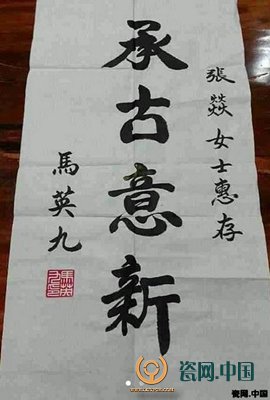 張燚女士惠存
承古意新
馬英九
馬英
九印
瓷网.中国
瓷网.中国